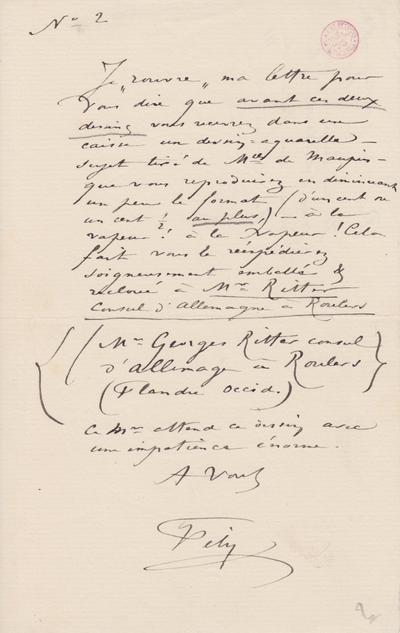 No 2
Je "rouvre" ma lettre pour
vous dire que avant ces deux
dessins vous recevrez dans une
caisse un dessin-aquarelle –
sujet tiré de Melle de Maupin –
que vous reproduirez en diminuant
un peu le format (d'un cent ou
un cent ½ au plus,) – à la
vapeur! à la vapeur! Cela
fait vous le réexpédierez
soigneusement emballé &
recloué à Mr Ritter
Consul d'Allemagne à Roulers
(Mr Georges Ritter consul
d'allemagne à Roulers
(Flandre Occid.)
Ce Mr attend ce dessin avec
une impatience énorme.
A Vous